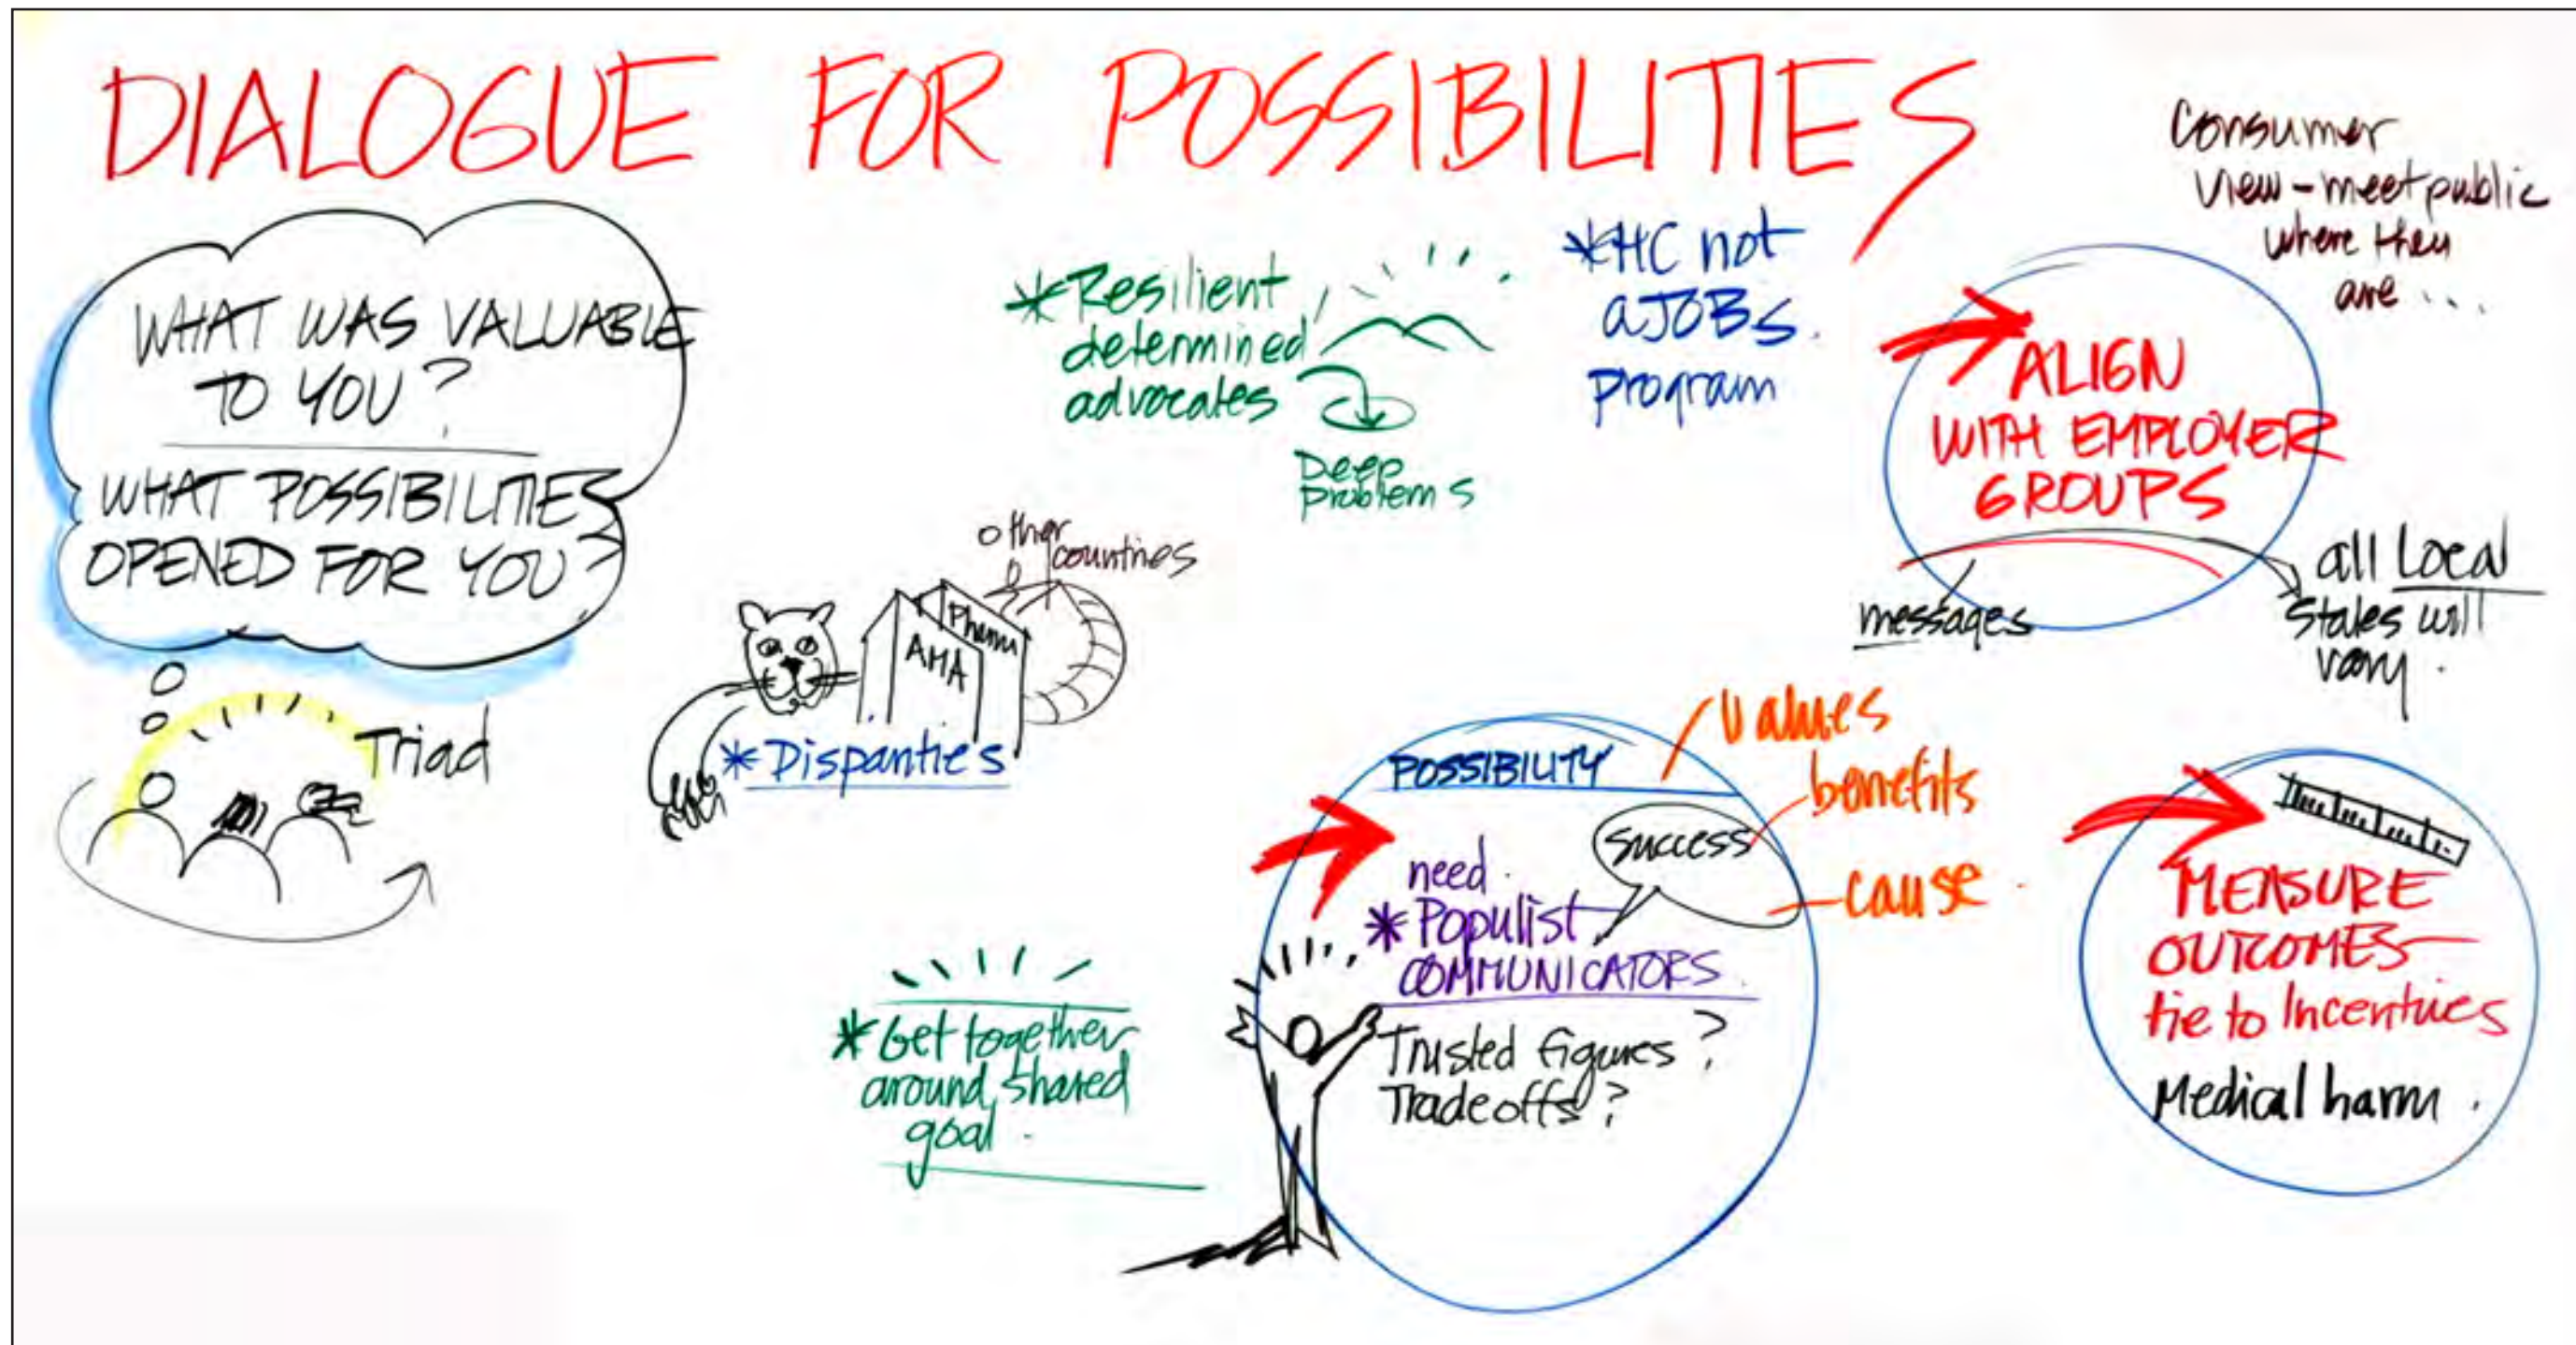 DIALOGUE FOR POSSIBILITIES
WHAT WAS VALUABLE
TO YOU?
WHAT POSSIBILITIES
OPENED FOR YOU?
Triad
*Resilient
determined
advocates
Deep
problems
*HC not
a JOBS
program
Consumer
view - meet public
where they
are ...
ALIGN
WITH EMPLOYER
GROUPS
messages
all Local
states will
vary.
other
countries
Pharm
AMA
*Disparities
*Get together
around shared
goal.
POSSIBILITY
Values
benefits
cause
success
need
*Populist
COMMUNICATORS
Trusted figures?
Tradeoffs?
MEASURE
OUTCOMES-
tie to Incentives
Medical harm.